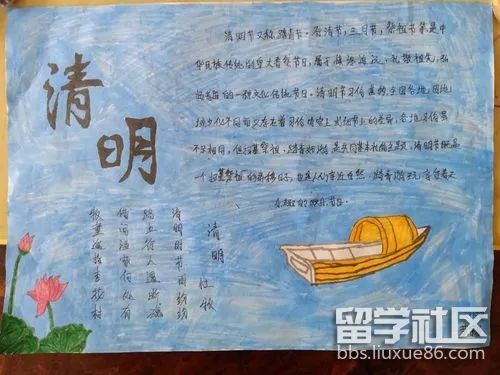 清明
清明节又称踏青节、行清节、三月节、祭祖节等,是中
华民族传统隆重大春祭节日,属于慎终追远、礼敬祖先、弘
扬孝道的一种文化传统节日。清明节习俗
全国各地,因地
域文化不同而又存在着习俗内容上或细节上的差异,各地习俗虽
不尽相同,但扫墓祭祖、踏青郊游是共同基本礼俗主题。清明节既是
一个扫墓祭祖的肃穆日子,也是人们亲近自然、踏青游玩、享受春天
乐趣的欢乐节日。
清明
杜牧
清明时节雨纷纷
路上行人欲断魂
借问酒家何处有
牧童遥指杏花村
留学社区
bbs.liuxue86.com